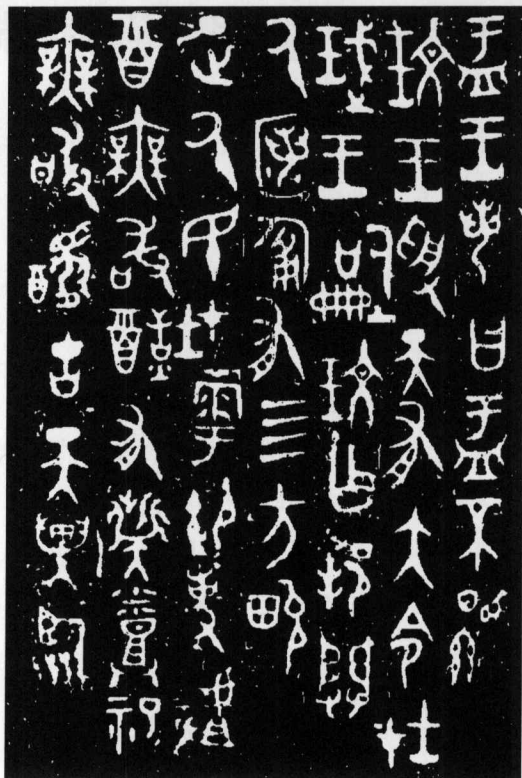 盂王若曰盂不顯
玟王受天有大令在
珷王嗣玟乍邦闢
厥匿匍有四方畯
正厥民在雩御事䖒
酉無敢酖有祡烝祀
無敢醻古天異臨